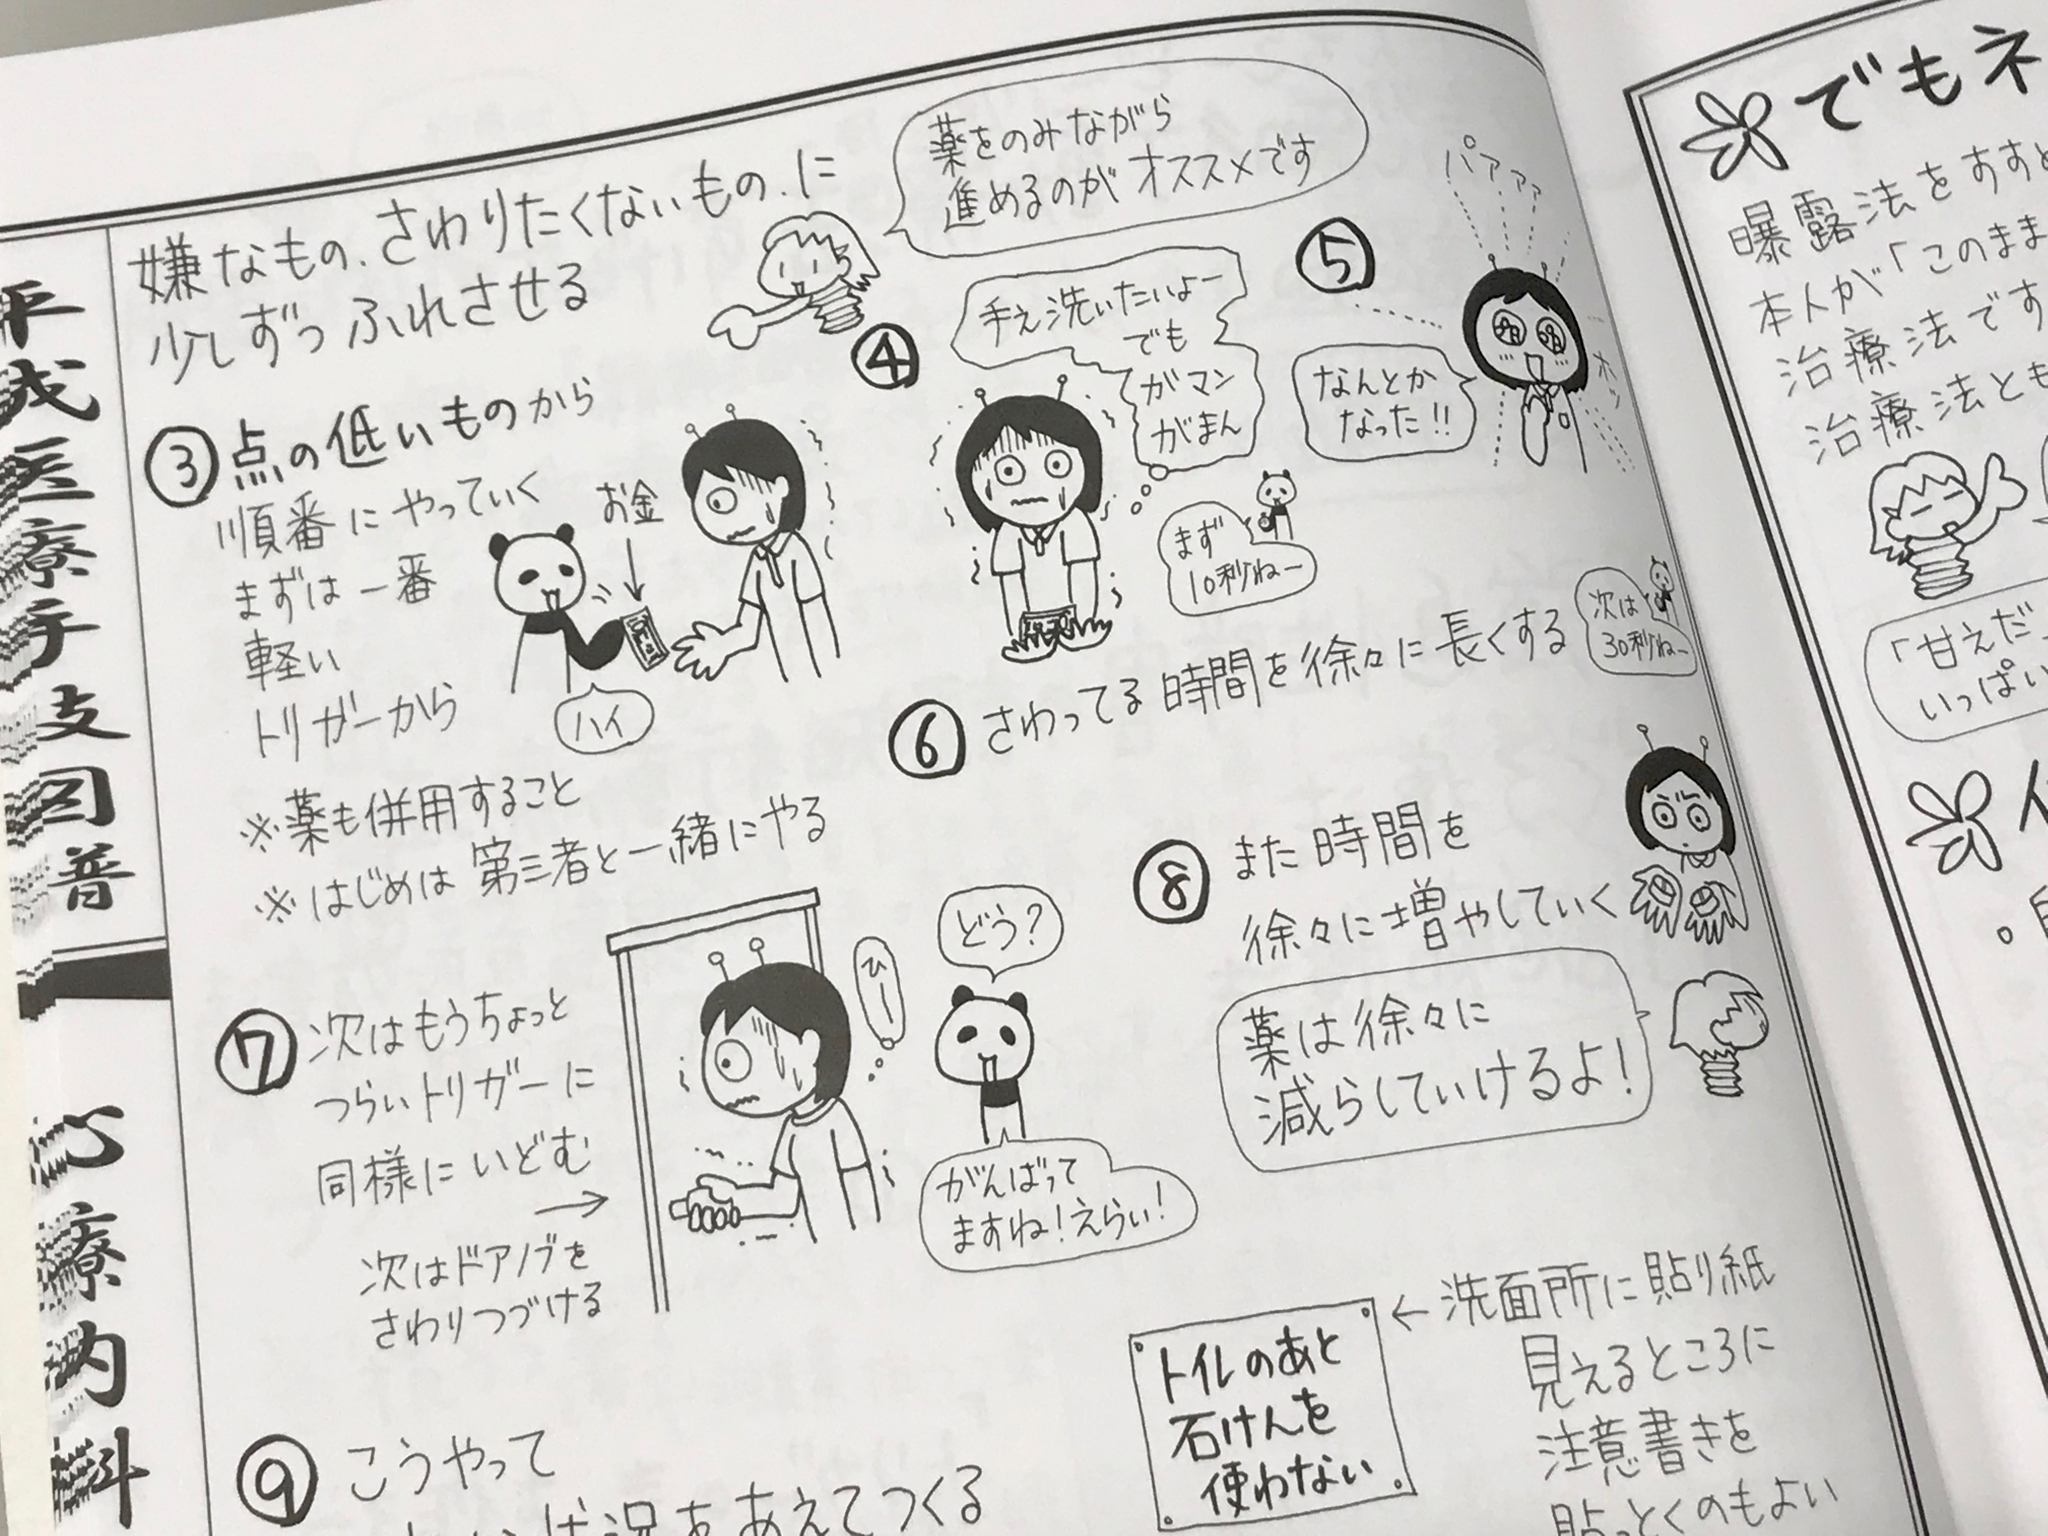 嫌なもの、さわりたくないもの、に
少しずつふれさせる
薬をのみながら
進めるのがオススメです
③点の低いものから
順番にやっていく
まずは一番
軽い
トリガーから
お金
ハイ
※薬も併用すること
※はじめは第三者と一緒にやる
④
手え洗いたいよー
でも
がマン
がまん
まず
10秒ねー
⑤
パアァァ
なんとか
なった!!
ホッ
⑥さわってる時間を徐々に長くする
次は
30秒ねー
⑦次はもうちょっと
つらいトリガーに
同様にいどむ
→
次はドアノブを
さわりつづける
ひー
どう?
がんばって
ますね!えらい!
⑧また時間を
徐々に増やしていく
薬は徐々に
減らしていけるよ!
トイレのあと
石けんを
使わない
←洗面所に貼り紙
見えるところに
注意書きを
貼っとくのもよい
⑨こうやって
状況をあえてつくる
平成医療手図普
心療内科
でもネ
曝露法をすすめ
本人が「このまま
治療法です
治療法とも
「甘えだ」
いっぱい